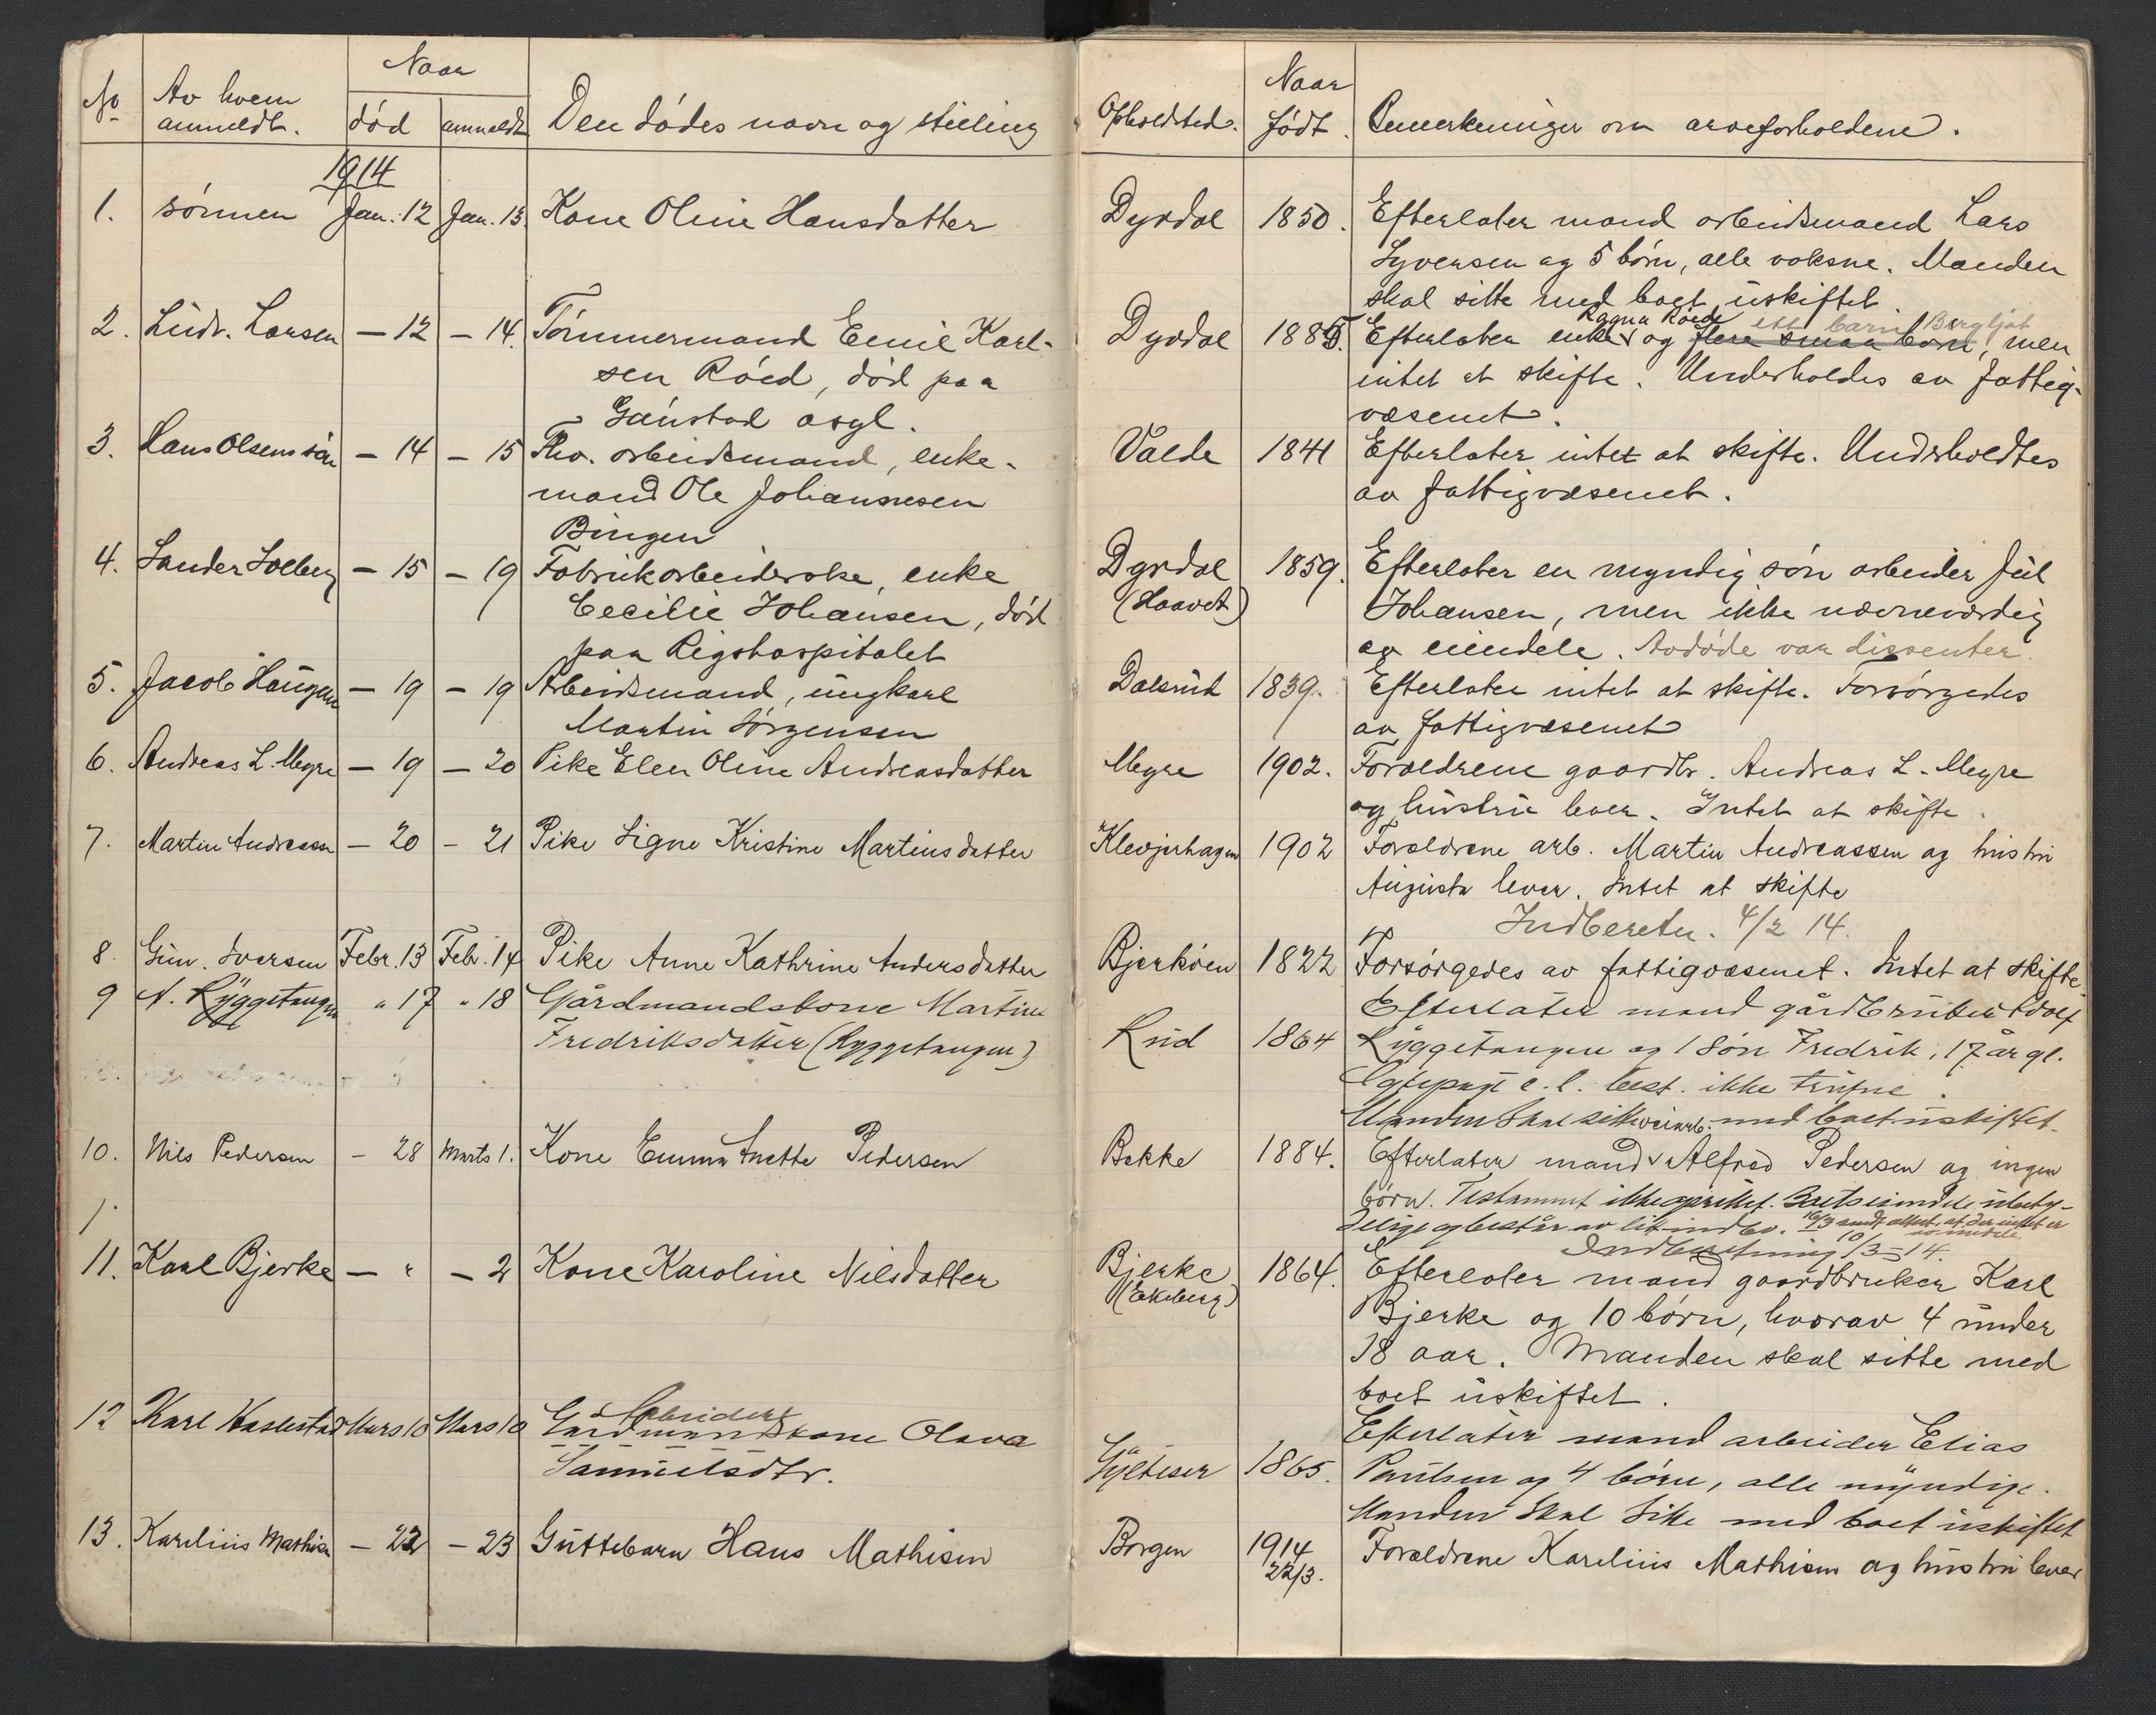 No Av hvem anmeldt. Naar død anmeldt Den dødes navn og stilling Opholdsted. Naar født. Bemerkninger om arveforholdene.
1914
1. sønnen Jan. 12 Jan. 13. Kone Oline Hansdatter Dyrdal 1850. Efterlater mand arbeidsmand Lars
Syversen og 5 børn, alle voksne. Manden
skal sitte med boet uskiftet
2. Ludv. Larsen — 12 — 14. Tømmermand Emil Karl- Dyrdal 1885. Efterlater enke Ragna Røed og flere smaa børn ett barn Bergljot, men
sen Røed, død paa intet at skifte. Underholdes av fattig-
Gaustad asyl. væsenet.
3. Hans Olsens søn — 14 — 15 Fhv. arbeidsmand, enke- Valde 1841 Efterlater intet at skifte. Underholdtes
mand Ole Johannesen av fattigvæsenet.
Bingen
4. Sander Solberg — 15 — 19 Fabrikarbeiderske, enke Dyrdal 1859. Efterlater en myndig søn arbeider Jul
Cecilie Johansen, død (Haavet) Johansen, men ikke nævneværdig
paa Rigshospitalet av eiendele. Avdøde var dissenter.
5. Jacob Haugen — 19 — 19 Arbeidsmand, ungkarl Dalsrud 1839. Efterlater intet at skifte. Forsørgedes
Martin Jørgensen av fattigvæsenet
6. Andreas L. Mugre — 19 — 20 Pike Elen Oline Andreasdatter Mugre 1902. Forældrene gaardbr. Andreas L. Mugre
og hustru lever. Intet at skifte.
7. Martin Andreassen — 20 — 21 Pike Signe Kristine Martinsdatter Klevjerhagen 1902 Forældrene arb. Martin Andreassen og hustru
Augusta lever. Intet at skifte
Indberetn. 4/2 14.
8. Gun. Iversen Febr. 13 Febr. 14 Pike Anne Kathrine Andersdatter Bjerkøen 1822 Forsørgedes av fattigvæsenet. Intet at skifte
9 A. Ryggetangen " 17 " 18 Gårdmandskone Martine Efterlater mand gårdbruker Adolf
Fredriksdatter (Ryggetangen) Rud 1864 Ryggetangen og 1 søn Fredrik, 17 år gl.
Egtepagt e. l. best. ikke trufne.
Manden skal sitte med boet uskiftet.
10. Nils Pedersen — 28 Marts 1. Kone Emma Anette Pedersen Bakke 1884. Efterlater mand veiarb. Alfred Pedersen og ingen
børn. Testament ikke oprettet. Boets eiendele ubety-
delige og består av litt indbo. 16/3 sendt attest, at der intet er
av eiendele
Indberetning 10/3-14.
11. Karl Bjerke — " — 2 Kone Karoline Nilsdatter Bjerke 1864. Efterlater mand gaardbruker Karl
(Ekeberg) Bjerke og 10 børn, hvorav 4 under
18 aar. Manden skal sitte med
boet uskiftet.
12 Karl Haslestad Mars 10 Mars 10 Arbeider
Gardmandskone Olava Efterlater mand arbeider Elias
Samuelsdtr. 1865. Paulsen og 4 børn, alle myndige.
Manden skal sitte med boet uskiftet
13. Karelius Mathisen — 22 — 23 Guttebarn Hans Mathisen Borgen 1914 Forældrene Karelius Mathisen og hustru lever
22/3.